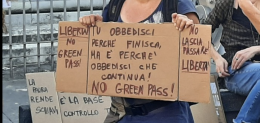 LIBERTA'
NO
GREEN
PASS!
TU OBBEDISCI
PERCHÉ FINISCA,
MA È PERCHÉ
OBBEDISCI CHE
CONTINUA!
NO GREEN PASS!
NO
LASCIA
PASSARE
LIBERTA'
LA
PAURA
RENDE
SCHIAVI
È LA BASE
CONTROLLO